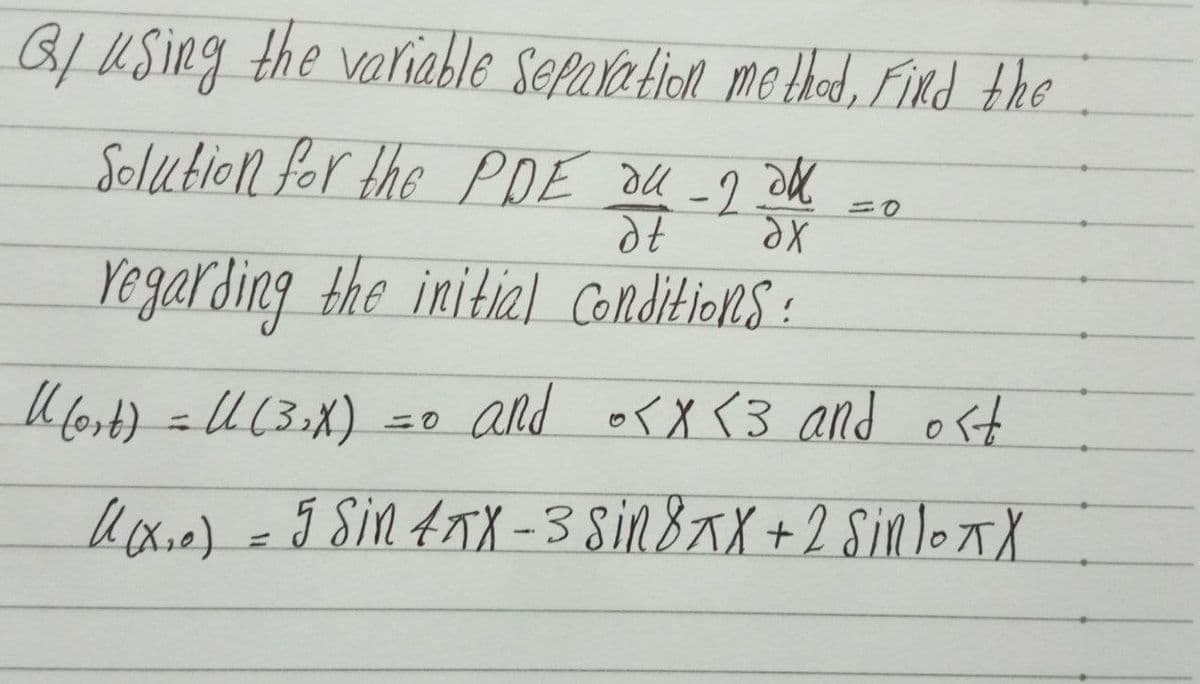 Q/ Using the variable Separation method, Find the
Solution for the PDE ∂u/∂t - 2 ∂u/∂x = 0
regarding the initial Conditions:
U(0,t) = U(3,X) = 0 and 0<X<3 and 0<t
U(X,0) = 5 Sin 4πX - 3 Sin 8πX + 2 Sin 10πX